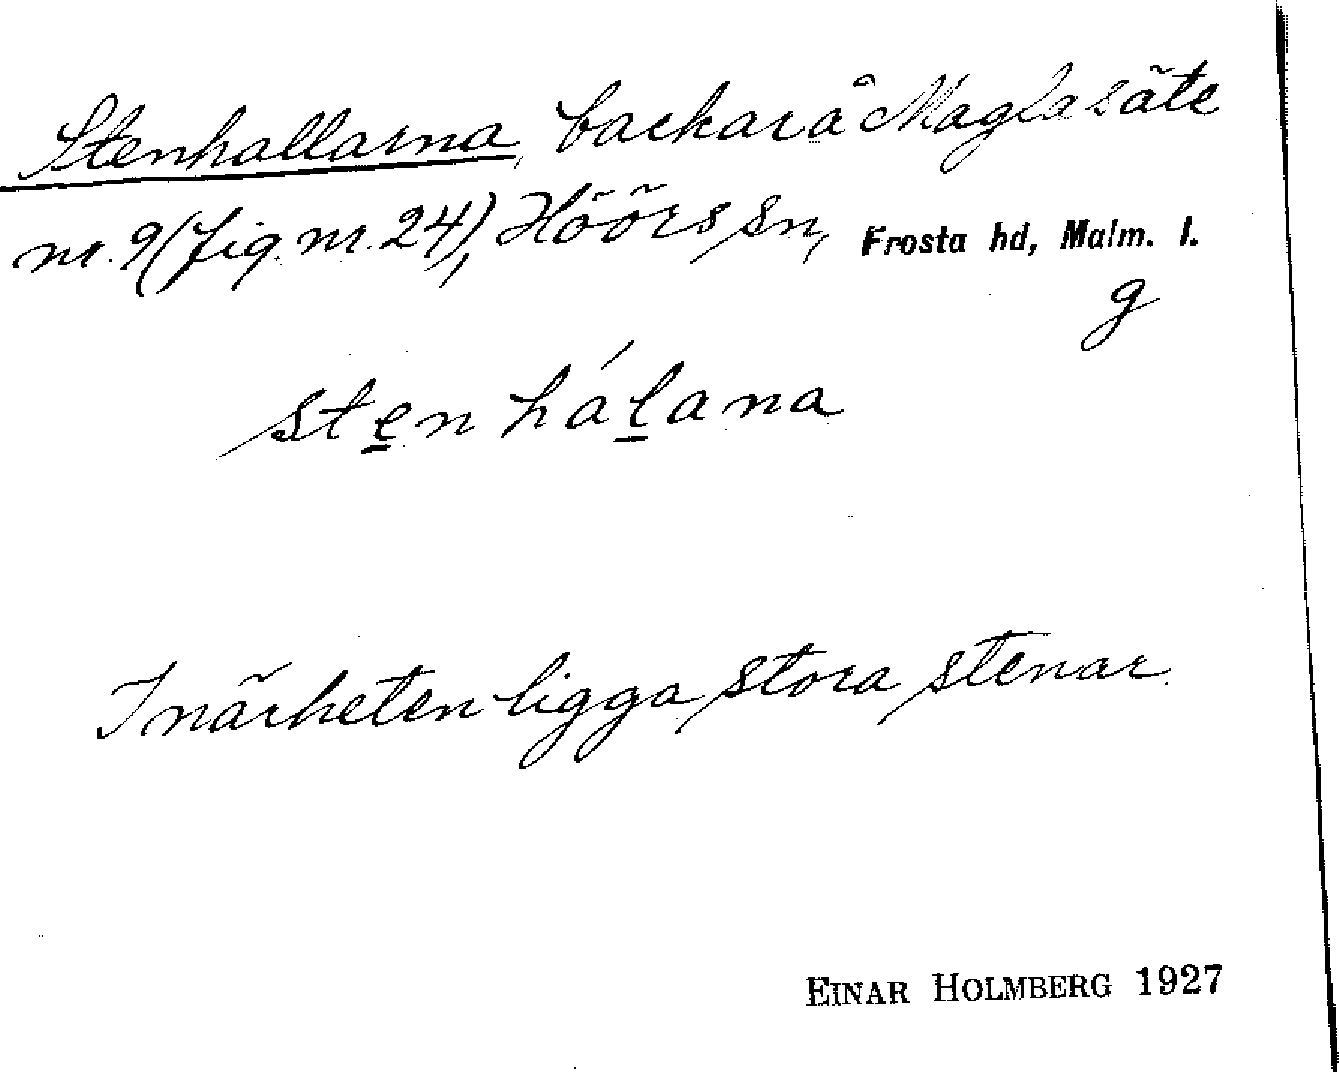 Stenhallarna, backar å Maglasäte
nr. 9 (fig. nr. 24), Höörs sn, Frosta hd, Malm. l.
g
stẹn hálana
I närheten ligga stora stenar.
EINAR HOLMBERG 1927